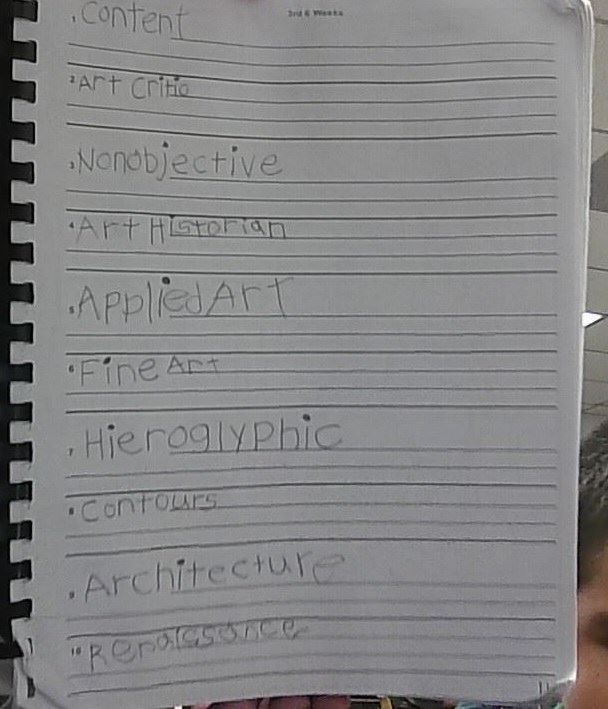 3rd 6 Weeks
1. Content
2. Art Critic
3. Nonobjective
4. Art Historian
5. Applied Art
6. Fine Art
7. Hieroglyphic
8. Contours
9. Architecture
10. Renaissance
11